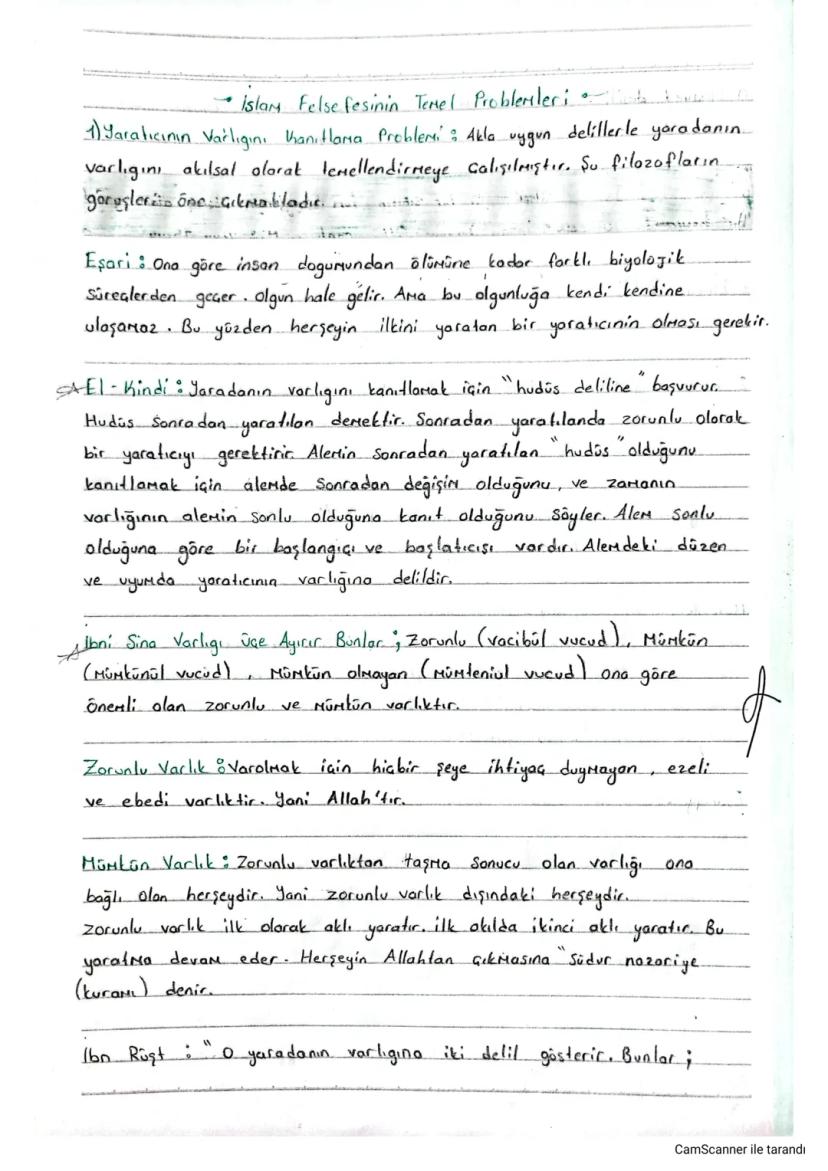 İslam Felsefesinin Temel Problemleri
1) Yaratıcının Varlığını Kanıtlama Problemi : Akla uygun delillerle yaradanın
varlığını akılsal olarak temellendirmeye çalışılmıştır. Şu filozofların
görüşleri öne çıkmaktadır.
Eşari : Ona göre insan dogumundan ölümüne kadar farklı biyolojik
süreçlerden geçer. Olgun hale gelir. Ama bu olgunluğa kendi kendine
ulaşamaz. Bu yüzden herşeyin ilkini yaratan bir yaratıcının olması gerekir.
El-Kindi : Yaradanın varlığını kanıtlamak için "hudüs deliline" başvurur.
Hudüs sonradan yaratılan demektir. Sonradan yaratılanda zorunlu olarak
bir yaratıcıyı gerektirir. Alemin sonradan yaratılan "hudüs" olduğunu
kanıtlamak için alemde sonradan değişim olduğunu, ve zamanın
varlığının alemin sonlu olduğuna kanıt olduğunu söyler. Alem sonlu
olduğuna göre bir başlangıçı ve başlatıcısı vardır. Alemdeki düzen
ve uyumda yaratıcının varlığına delildir.
İbni Sina Varlıgı Üçe Ayırır Bunlar ; Zorunlu (vacibül vucud), Mümkün
(mümkünül vucud), Mümkün olmayan (mümteniul vucud) ona göre
önemli olan zorunlu ve mümkün varlıktır.
Zorunlu Varlık : Varolmak için hiçbir şeye ihtiyaç duymayan, ezeli
ve ebedi varlıktir. Yani Allah'tır.
Mümkün Varlık : Zorunlu varlıktan taşma sonucu olan varlığı ona
bağlı olan herşeydir. Yani zorunlu varlık dışındaki herşeydir.
Zorunlu varlık ilk olarak aklı yaratır. ilk akılda ikinci aklı yaratır. Bu
yaratma devam eder. Herşeyin Allahtan çıkmasına "Südur nazariye
(kuramı) denir.
İbn Rüşt : "O yaradanın varlıgına iki delil gösterir. Bunlar ;
CamScanner ile tarandı